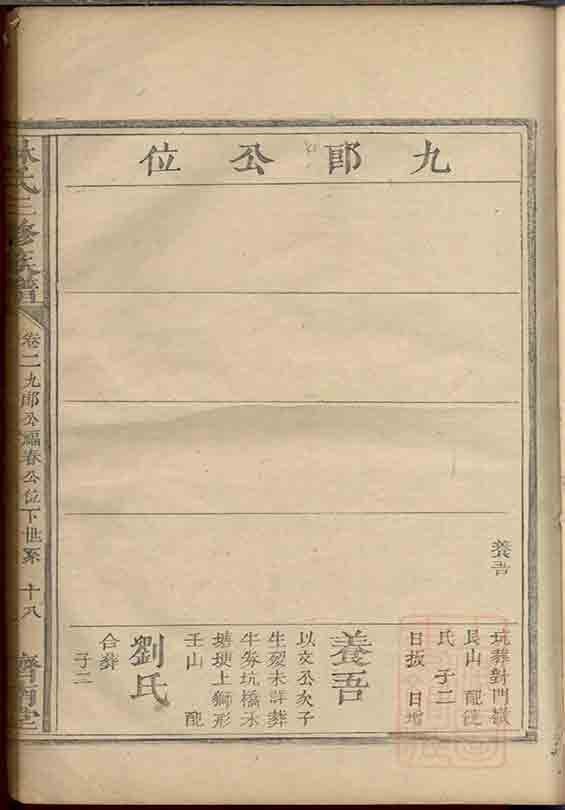 九郎公位
養吾
坑葬對門嶺
艮山 配
氏 子二
日扳 日增
養吾
以文公次子
生歿未詳葬
牛旁坑橋水
塘埂上獅形
壬山 配
劉氏
合葬
子二
林氏三修族譜
卷二九郎公福春公位下世系 十八
濟南堂